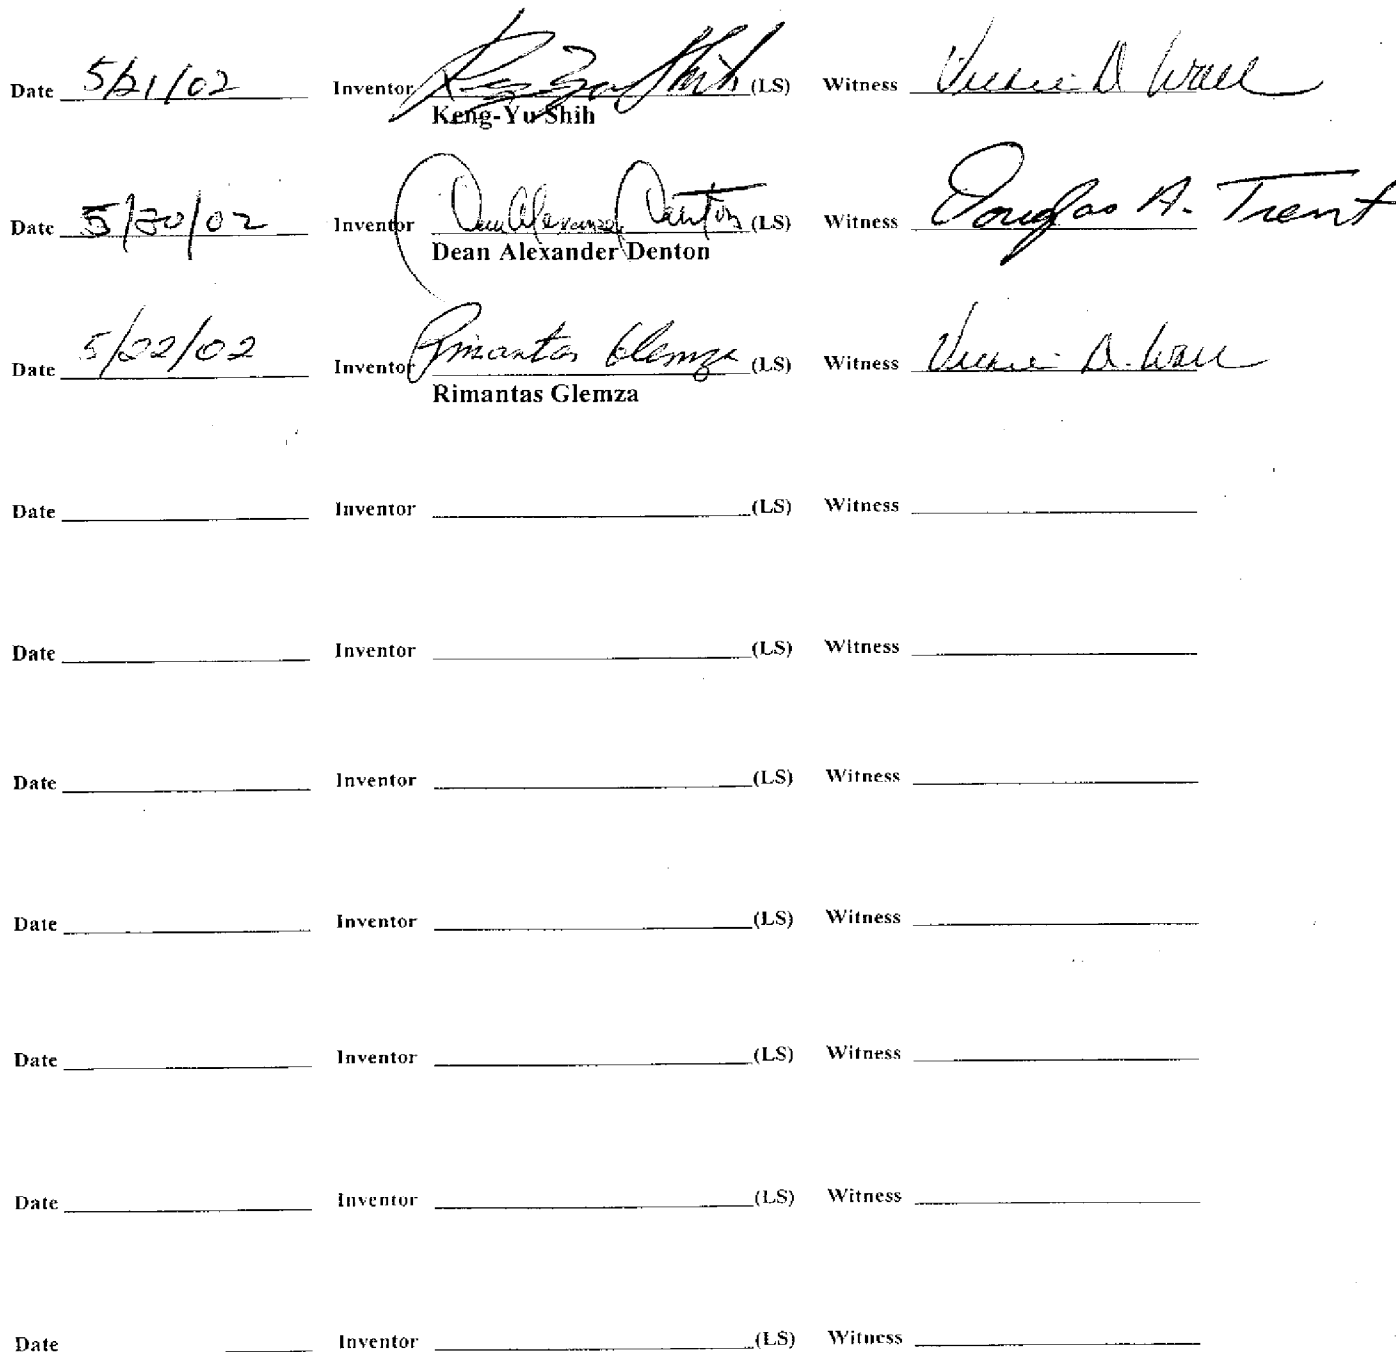 Date 5/21/02 Inventor Keng-Yu Shih (LS) Witness D Wall
Keng-Yu Shih
Date 5/20/02 Inventor Dean Alexander Denton (LS) Witness Douglas A. Trent
Dean Alexander Denton
Date 5/22/02 Inventor Rimantas Glemza (LS) Witness D. Wall
Rimantas Glemza
Date Inventor (LS) Witness
Date Inventor (LS) Witness
Date Inventor (LS) Witness
Date Inventor (LS) Witness
Date Inventor (LS) Witness
Date Inventor (LS) Witness
Date Inventor (LS) Witness